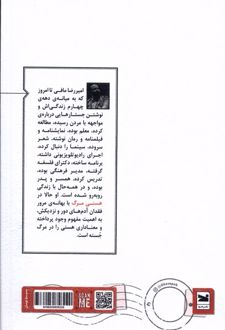 امیررضا مافی تا امروز
که به میانه‌ی دهه‌ی
چهارم زندگی‌اش و
نوشتن جستارهایی درباره‌ی
مواجهه با مردن رسیده، مطالعه
کرده، معلم بوده، نمایشنامه و
فیلمنامه و رمان نوشته، شعر
سروده، سینما را دنبال کرده،
اجرای رادیوتلویزیونی داشته،
برنامه ساخته، دکترای فلسفه
گرفته، مدیر فرهنگی بوده،
تدریس کرده، همسر و پدر
بوده، و در همه‌حال با زندگی
روبه‌رو شده است. او حالا در
هستیِ مرگ با بهانه‌ی مرور
فقدان آدم‌های دور و نزدیکش،
به اهمیت مفهوم وجود پرداخته
و معناداری هستی را در مرگ
جُسته است.
SCAN
ME